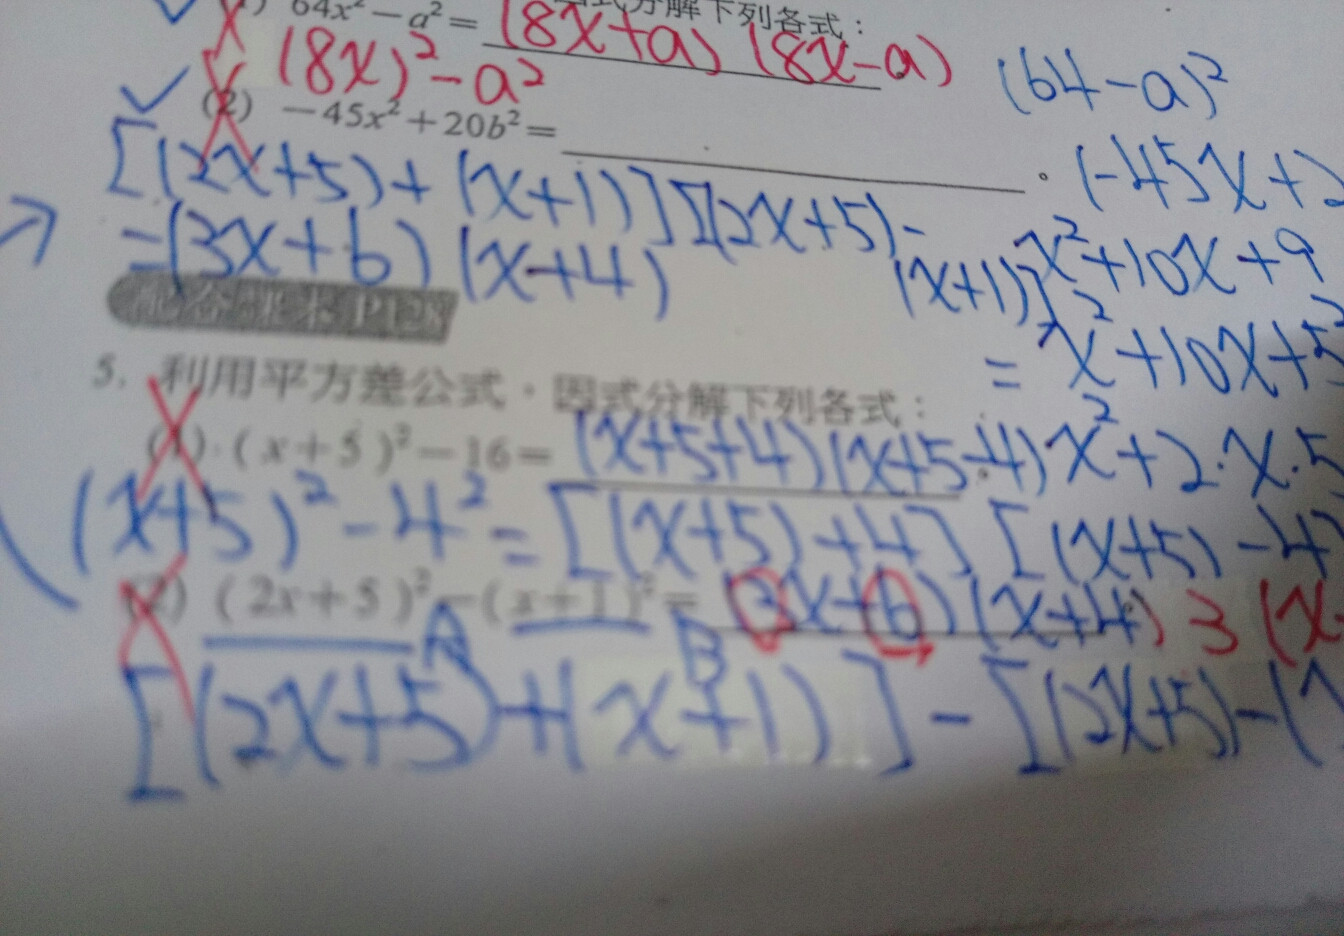 64x²-a²= (8x+a)(8x-a)
分解下列各式：
(8x)²-a²
(64-a)²
(2) -45x²+20b²=
(-45x+2
[(2x+5)+(x+1)][(2x+5)-
(x+1)]
=(3x+6)(x+4)
x²+10x+9
= x²+10x+5²
配合課本P128
5. 利用平方差公式，因式分解下列各式：
(1) (x+5)²-16= (x+5+4)(x+5-4)
x²+2·x·5
(x+5)²-4²=[(x+5)+4][(x+5)-4]
(2) (2x+5)²-(x+1)²= (3x+6)(x+4) 3(x
A B
[(2x+5)+(x+1)]-[(2x+5)-(